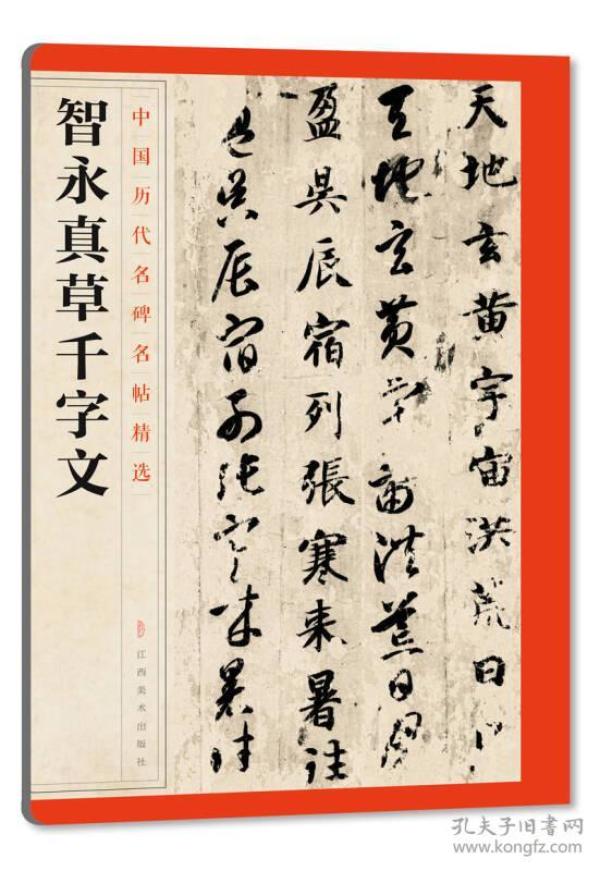 智永真草千字文
中国历代名碑名帖精选
江西美术出版社
天地玄黄宇宙洪荒日月
天地玄黄宇宙洪荒日月
盈昃辰宿列張寒来暑往
盈昃辰宿列張寒来暑往
孔夫子旧書网
www.kongfz.com